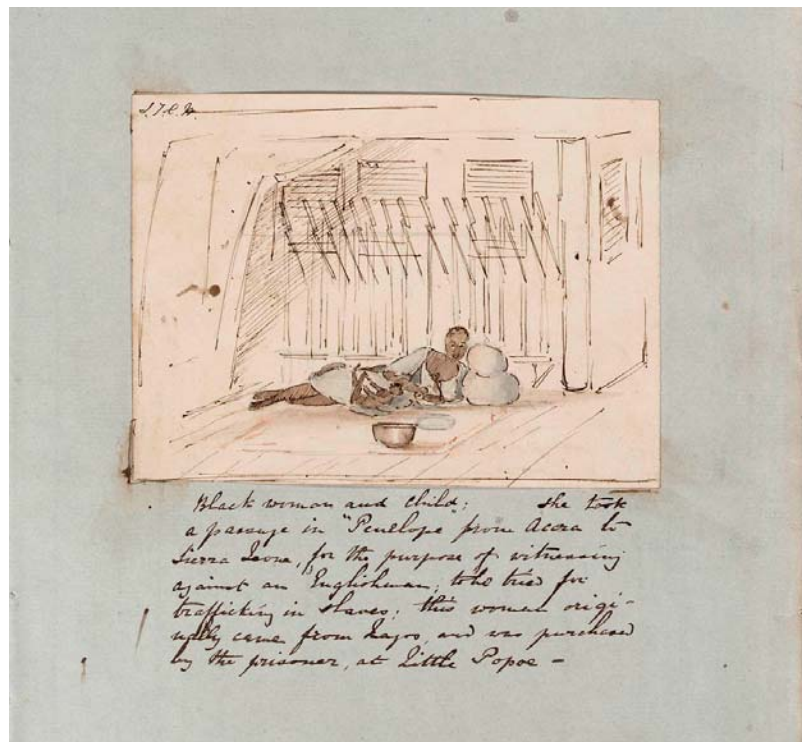 L.T.C.H.
Black woman and child; she took
a passage in "Penelope from Accra to
Sierra Leone, for the purpose of witnessing
against an Englishman, to be tried for
trafficking in slaves; this woman origi-
nally came from Lagos, and was purchased
by the prisoner, at Little Popoe -